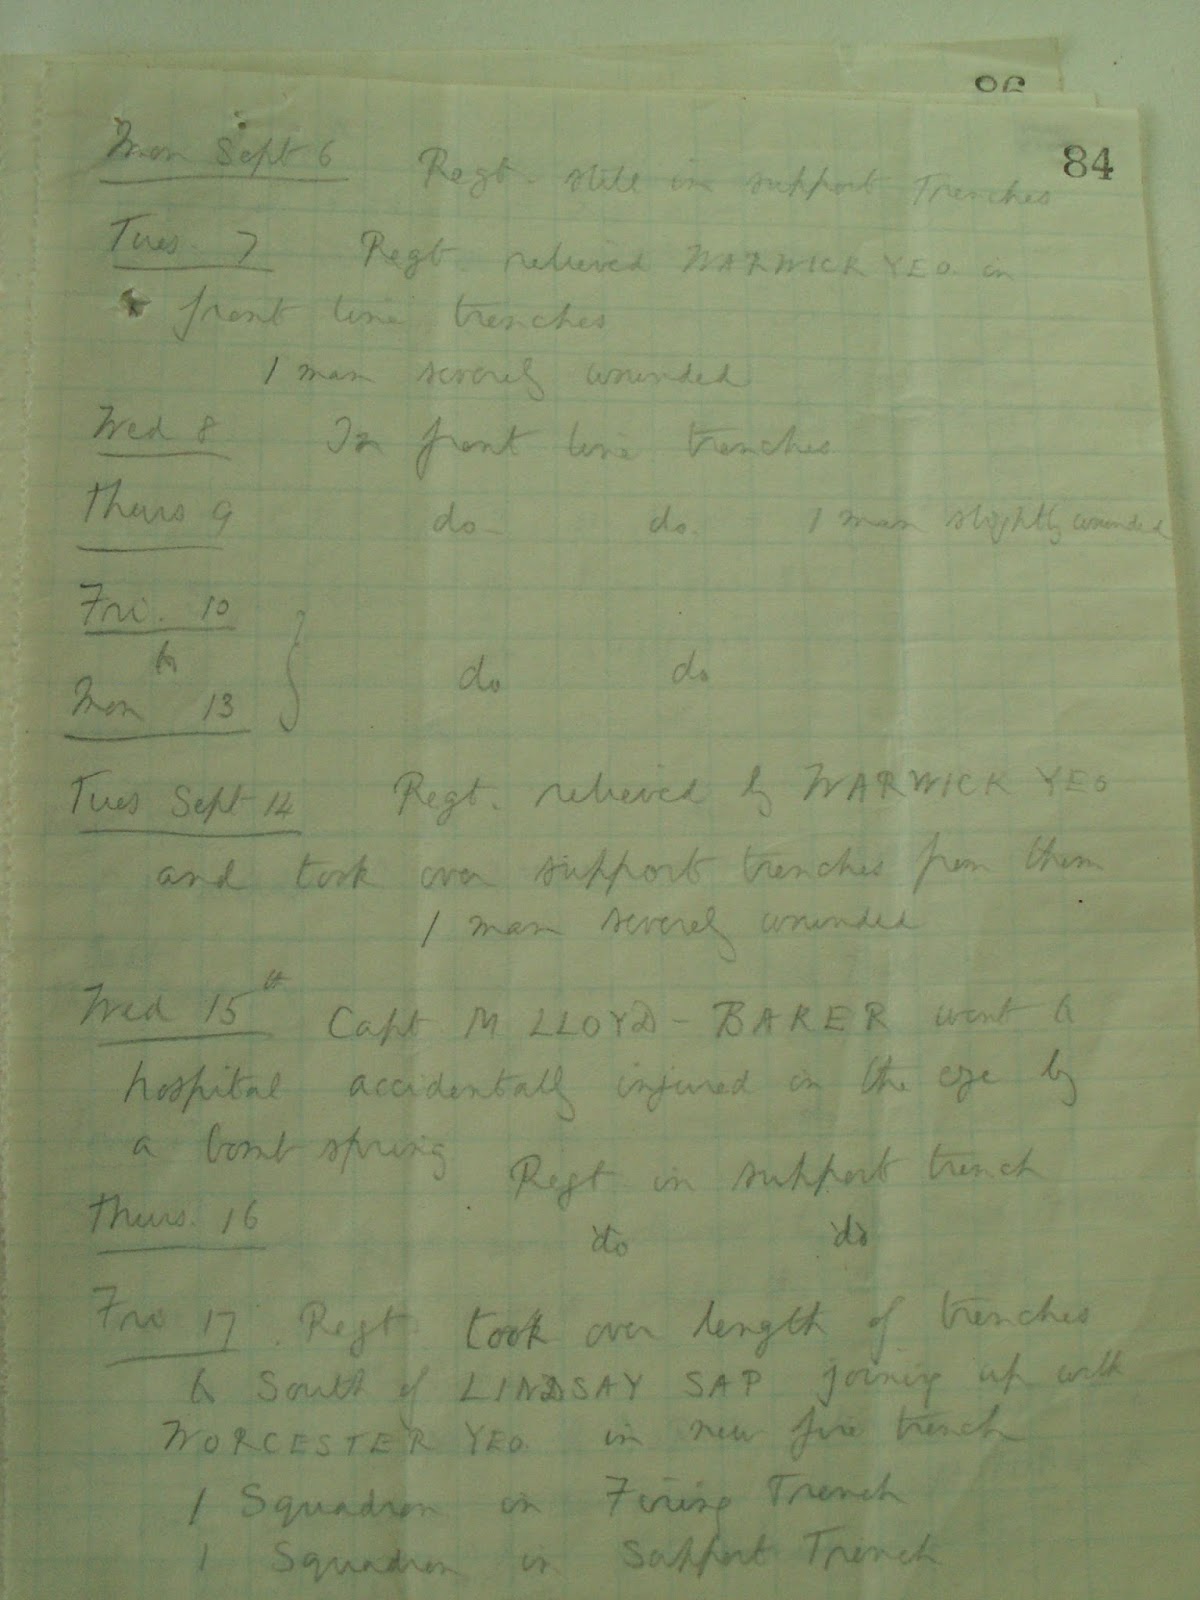 86
84
Mon Sept 6 Regt. still in support Trenches
Tues. 7 Regt. relieved WARWICK YEO. in
front line trenches
1 man severely wounded
Wed 8 In front line trenches
Thurs 9 do do. 1 man slightly wounded
Fri. 10
to
do do
Mon 13
Tues Sept 14 Regt. relieved by WARWICK YEO
and took over support trenches from them
1 man severely wounded
Wed 15th Capt M LLOYD-BAKER went to
hospital accidentally injured in the eye by
a bomb spring
Regt. in support trench
Thurs. 16 do do
Fri 17. Regt. took over length of trenches
to South of LINDSAY SAP joining up with
WORCESTER YEO. in new fire trench
1 Squadron in Firing Trench
1 Squadron in Support Trench